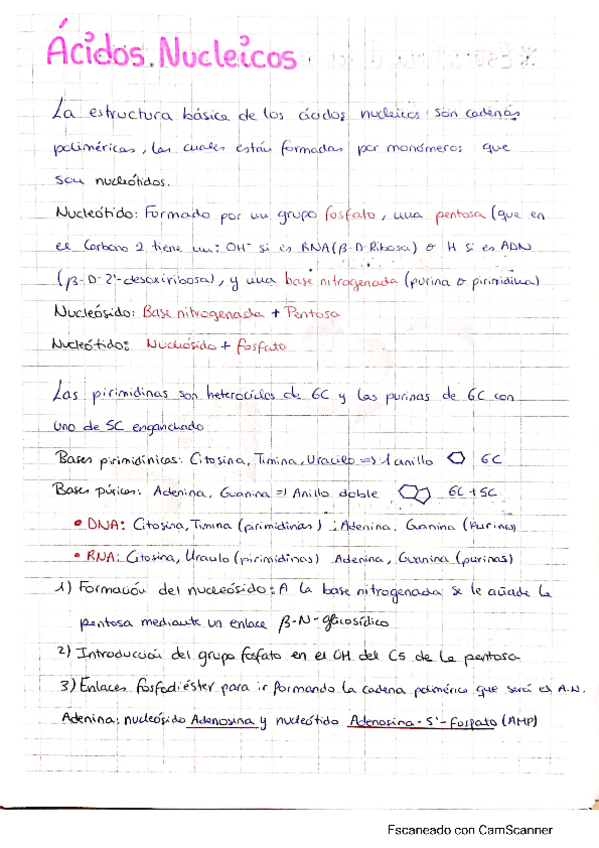 Ácidos Nucleicos
La estructura básica de los ácidos nucleicos son cadenas
poliméricas, las cuales están formadas por monómeros que
son nucleótidos.
Nucleótido: Formado por un grupo fosfato, una pentosa (que en
el Carbono 2 tiene un: OH⁻ si es RNA (β-D-Ribosa) o H si es ADN
(β-D-2'-desoxiribosa), y una base nitrogenada (purina o pirimidina)
Nucleósido: Base nitrogenada + Pentosa
Nucleótido: Nucleósido + fosfato
Las pirimidinas son heterociclos de 6C y las purinas de 6C con
uno de 5C enganchado
Bases pirimidínicas: Citosina, Timina, Uracilo => 1 anillo 6C
Bases púricas: Adenina, Guanina => Anillo doble 6C + 5C
• DNA: Citosina, Timina (pirimidinas) ; Adenina, Guanina (Purinas)
• RNA: Citosina, Uracilo (pirimidinas) Adenina, Guanina (purinas)
1) Formación del nucleósido: A la base nitrogenada se le añade la
pentosa mediante un enlace β-N-glicosídico
2) Introducción del grupo fosfato en el OH del C5 de la pentosa
3) Enlaces fosfodiéster para ir formando la cadena polimérica que será el A.N.
Adenina: nucleósido Adenosina y nucleótido Adenosina-5'-fosfato (AMP)
Escaneado con CamScanner